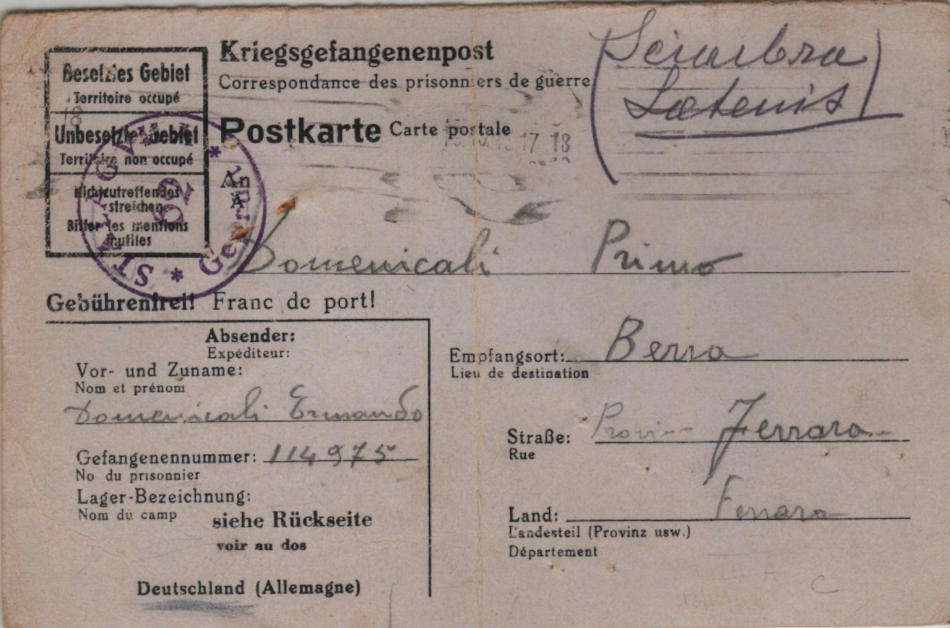 Kriegsgefangenenpost
Correspondance des prisonniers de guerre
Postkarte Carte postale
17 18
Besetztes Gebiet
Territoire occupé
Unbesetztes Gebiet
Territoire non occupé
Nichtzutreffendes
streichen
Biffer les mentions
inutiles
STALAG V
Geprüft
62
An
A
Domenicali Primo
Gebührenfrei! Franc de port!
Absender:
Expéditeur:
Vor- und Zuname:
Nom et prénom
Domenicali Ermando
Gefangenennummer: 114975
No du prisonnier
Lager-Bezeichnung:
Nom du camp
siehe Rückseite
voir au dos
Deutschland (Allemagne)
Empfangsort: Berra
Lieu de destination
Straße: Ferrara
Rue
Land: Ferrara
Landesteil (Provinz usw.)
Département